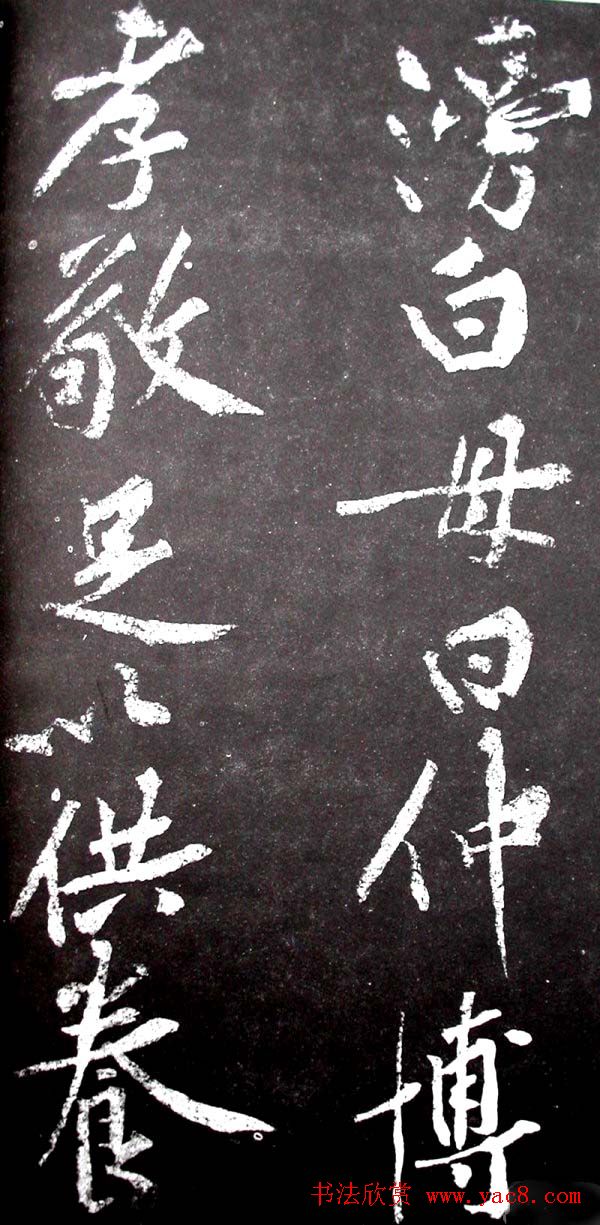 滂白母曰仲博
孝敬足以供養
书法欣赏 www.yac8.com